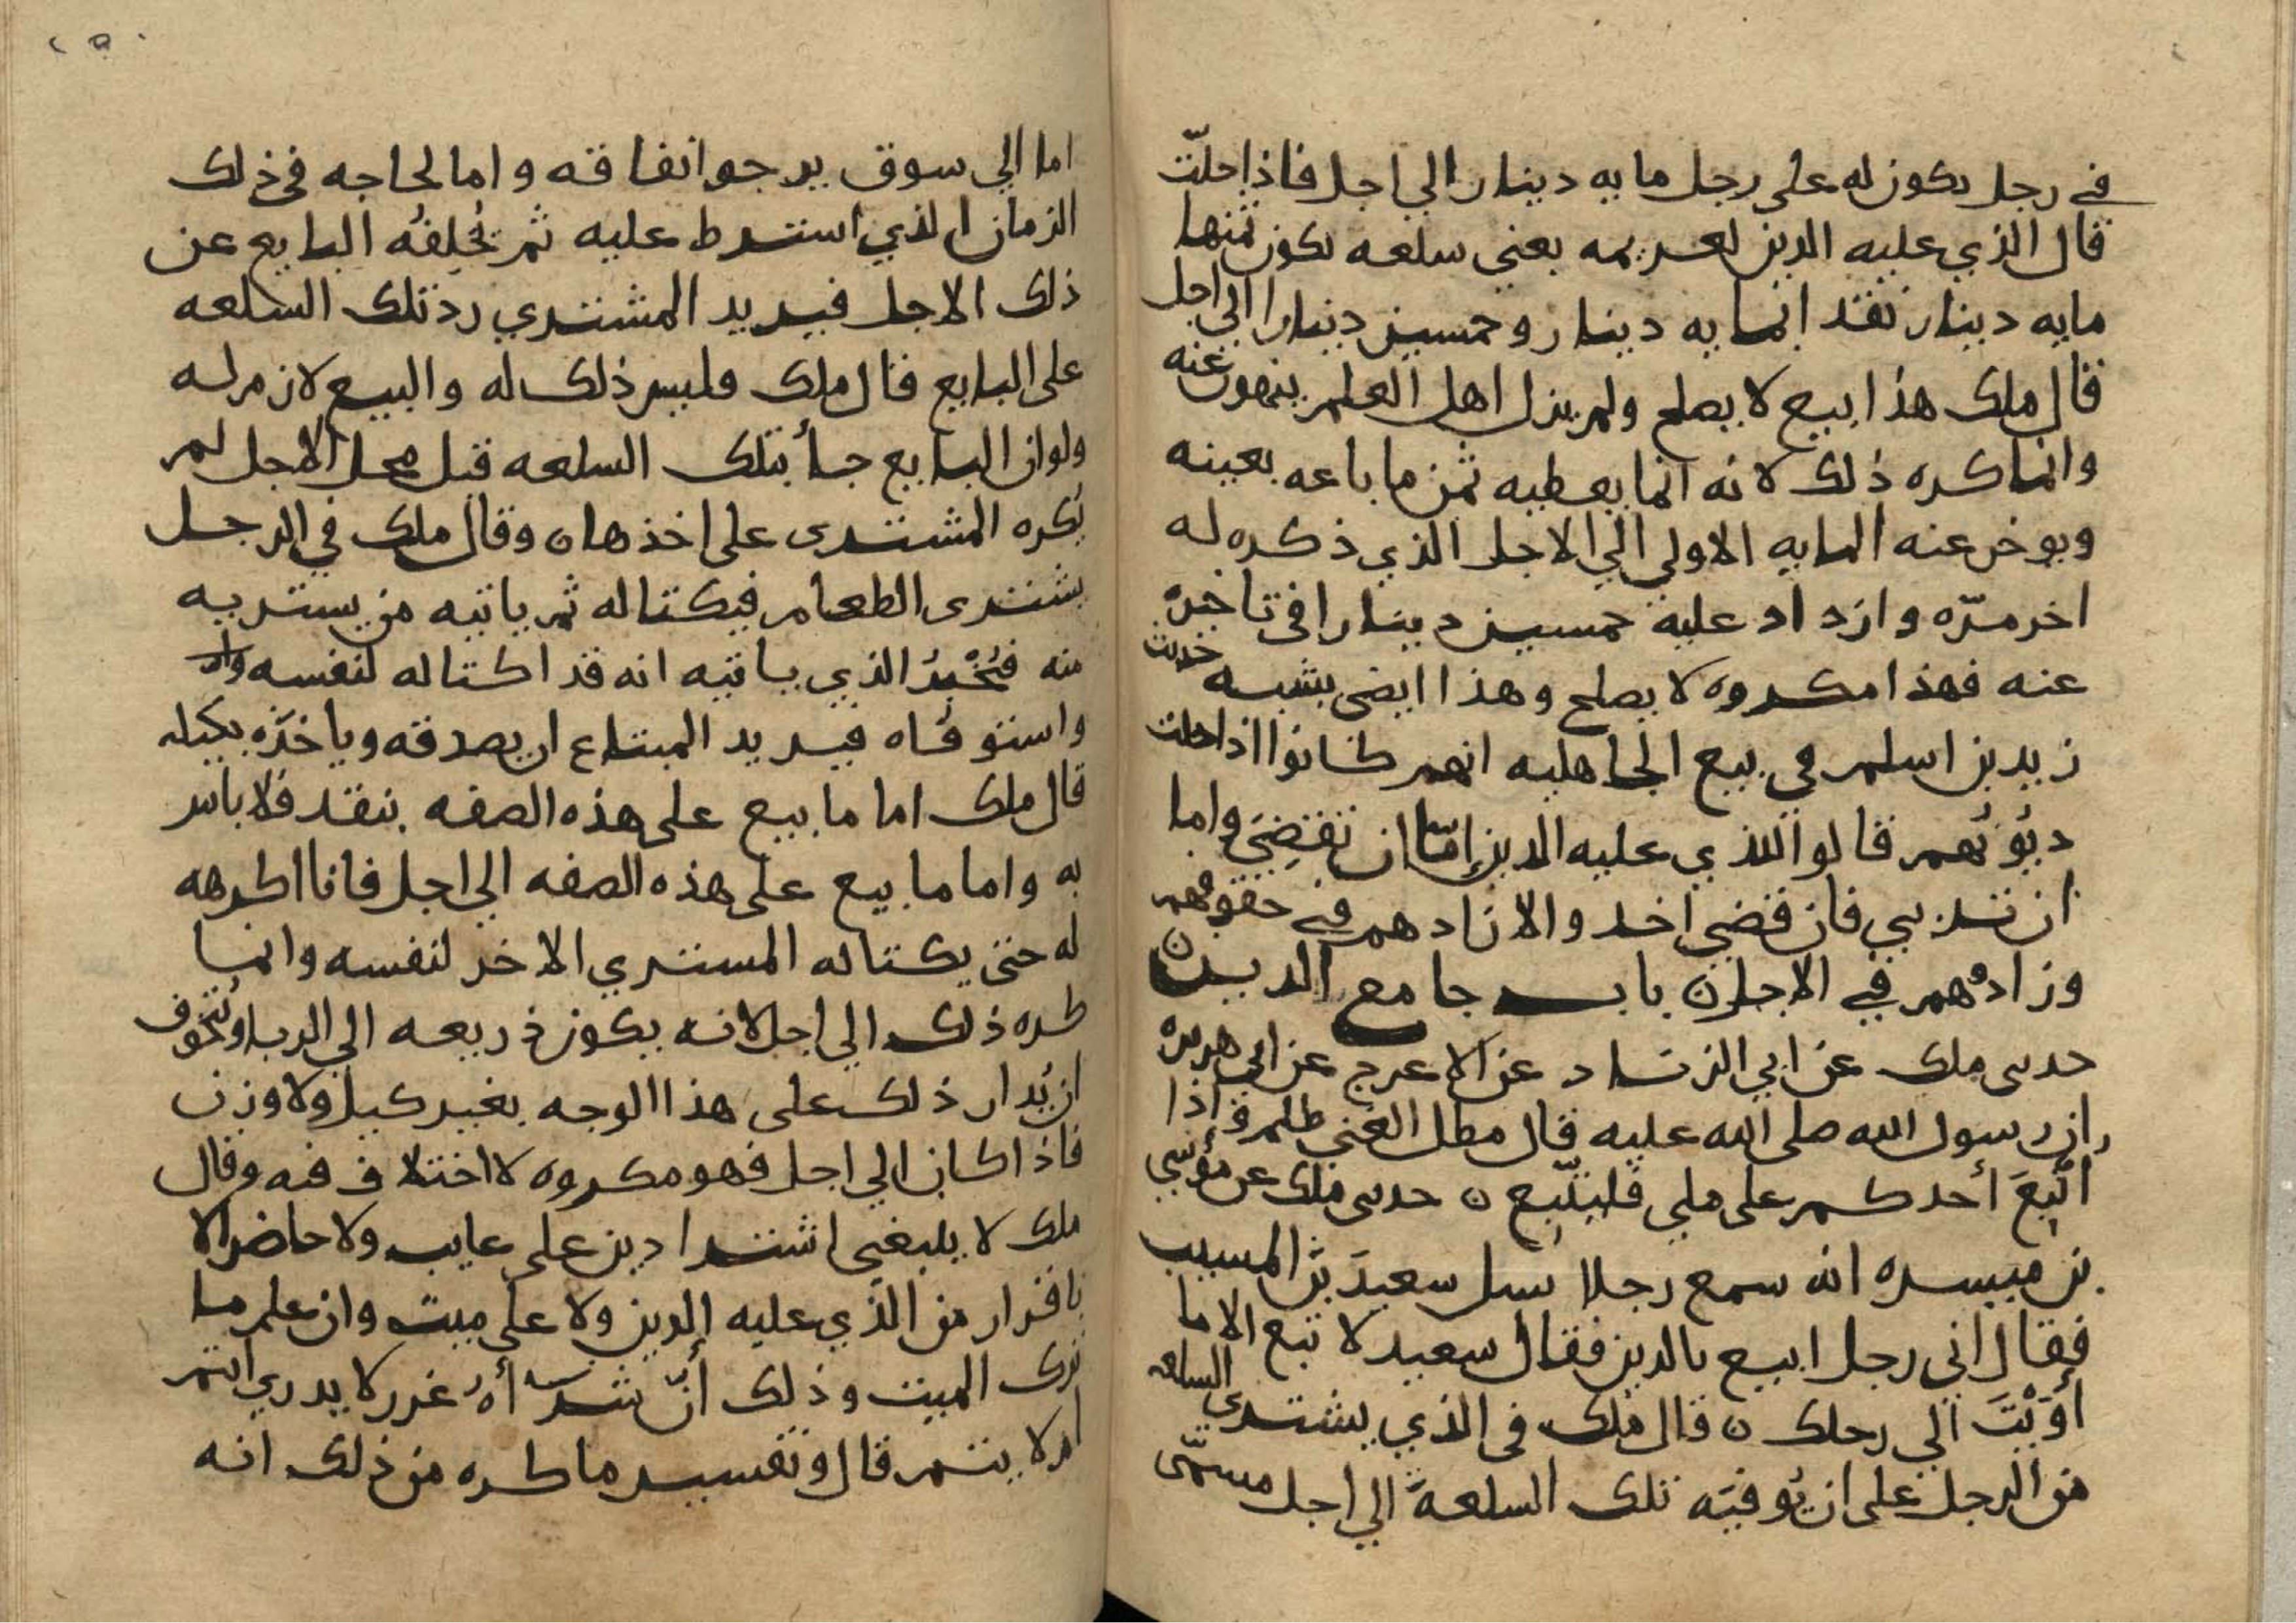 في رجل يكون له على رجل مايه دينار الي اجل فاذا حلّت
قال الذي عليه الدين لغريمه بعني سلعه يكون ثمنها
مايه دينار نقدا بمايه دينار وخمسين دينارا الي اجل
قال ملك هذا بيع لا يصلح ولم يزل اهل العلم ينهون عنه
وانما كره ذلك لانه انما يعطيه ثمن ما باعه بعينه
ويوخر عنه المايه الاولي الي الاجل الذي ذكره له
اخر مرّه وازداد عليه خمسين دينارا في تاخيره
عنه فهذا مكروه لا يصلح وهذا ايضى يشبه حديث
زيد بن اسلم في بيع الجاهليه انهم كانوا اذا حلت
ديُونُهم قالوا للذي عليه الدين إمّا ان تقضِيَ واما
ان تربي فان قضي اخد والا زادهم في حقوقهم
وزادوهم في الاجل ن باب جامع الدين ن
حدثى ملك عن ابي الزناد عن الاعرج عن ابي هريره
ان رسول الله صلى الله عليه قال مطل الغني ظلم واذا
اتّبعَ أحدكم على ملي فليتّبع ن حدثى ملك عن موُسي
بن ميسره انه سمع رجلا يسل سعيدَ بنَ المسيب
فقال اني رجل ابيع بالدين فقال سعيد لا تبع الا ما
أوَيْتَ الي رحلك ن قال ملك في الذي يشتري السلعه
من الرجل على ان يُوفيَه تلك السلعةَ الي اجل مسمّى
اما الي سوق يرجوا نفاقه واما لحاجه في ذلك
الزمان الذي اشترط عليه ثم يُخلِفُه البايع عن
ذلك الاجل فيريد المشتري رد تلك السلعه
على البايع قال ملك فليس ذلك له والبيع لازم له
ولو ان البايع جأ بتلك السلعه قبل محل الاجل لم
يُكره المشترى على اخذها ن وقال ملك في الرجل
يشترى الطعام فيكتاله ثم ياتيه من يشتريه
منه فيُخْبِرُ الذي ياتيه انه قد اكتاله لنفسه
واستوفاه فيريد المبتاع ان يصدقه وياخذَه بكيله
قال ملك اما ما بيع على هذه الصفه بنقد فلا باس
به واما ما بيع على هذه الصفه الي اجل فانا اكرهه
له حتى يكتاله المشتري الاخر لنفسه وانما
كره ذلك الي اجل لانه يكون ذريعه الي الربا وتُخُوف
ان يُدار ذلك على هذا الوجه بغير كيل ولا وزن
فاذا كان الي اجل فهو مكروه لا اختلاف فيه وقال
ملك لا ينبغي اشترا دين على غايب ولا حاضر الا
باقرار من الذي عليه الدين ولا على ميت وان علم ما
ترك الميت وذلك أنّ شرَآه غرر لا يدري ايتم
ام لا يتم قال وتفسير ما كره من ذلك انه